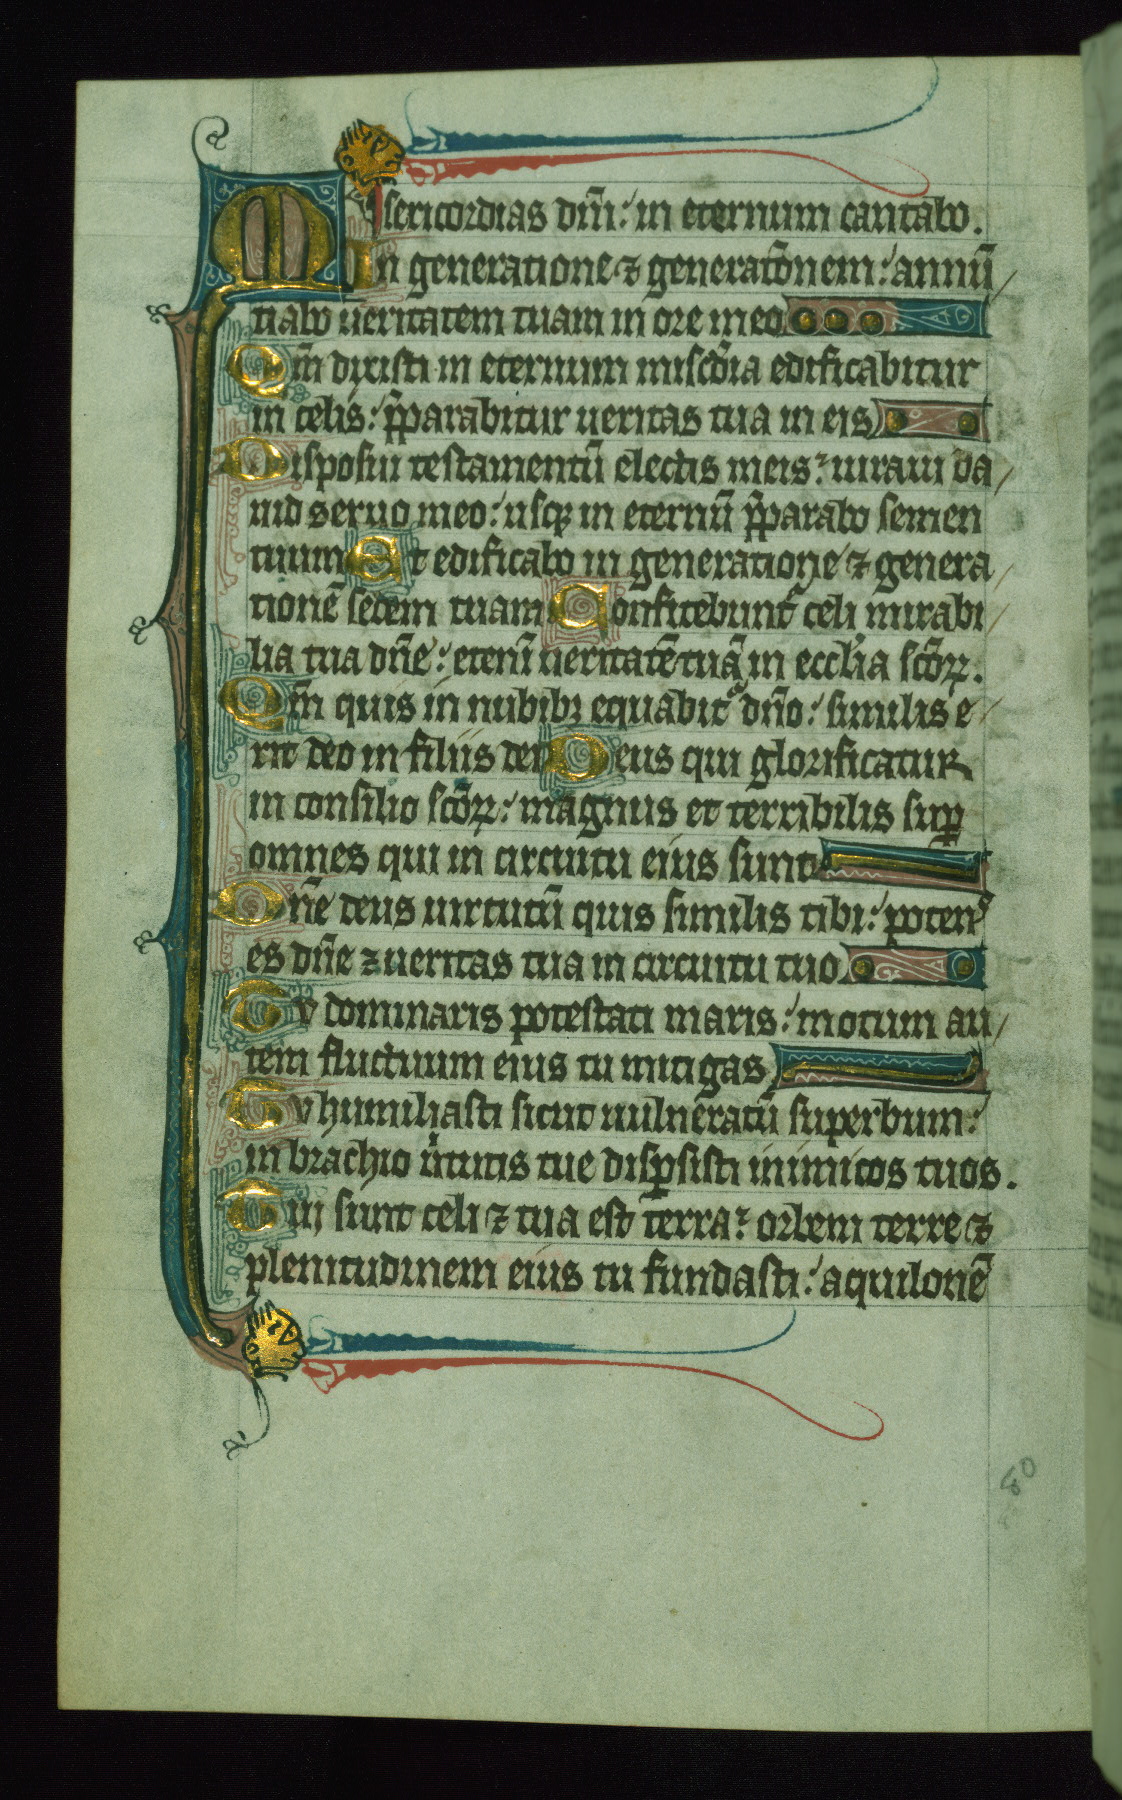 Misericordias dñi: in eternum cantabo.
In generatione ⁊ generatõnem: annũ
tiabo ueritatem tuam in ore meo
Qm̃ dixisti in eternum miscđia edificabitur
in celis: p̃parabitur ueritas tua in eis
Disposui testamentũ electis meis: iuraui da
uid seruo meo: usqꝫ in eternũ p̃parabo semen
tuum Et edificabo in generatione ⁊ genera
tionẽ sedem tuam Confitebunt᷑ celi mirabi
lia tua dñe: etenĩ ueritatẽ tuã in eccl̃ia scõꝝ.
Qm̃ quis in nubibꝫ equabit᷑ dño: similis e
rit deo in filiis dei Deus qui glorificatur
in consilio scõꝝ: magnus et terribilis suꝑ
omnes qui in circuitu eius sunt
Dñe deus uirtutũ quis similis tibi: potens
es dñe ⁊ ueritas tua in circuitu tuo
Tu dominaris potestati maris: motum au
tem fluctuum eius tu mitigas
Tu humiliasti sicut uulneratũ superbum:
in brachio ũtutis tue disꝑsisti inimicos tuos.
Tui sunt celi ⁊ tua est terra: orbem terre ⁊
plenitudinem eius tu fundasti: aquilonẽ
80